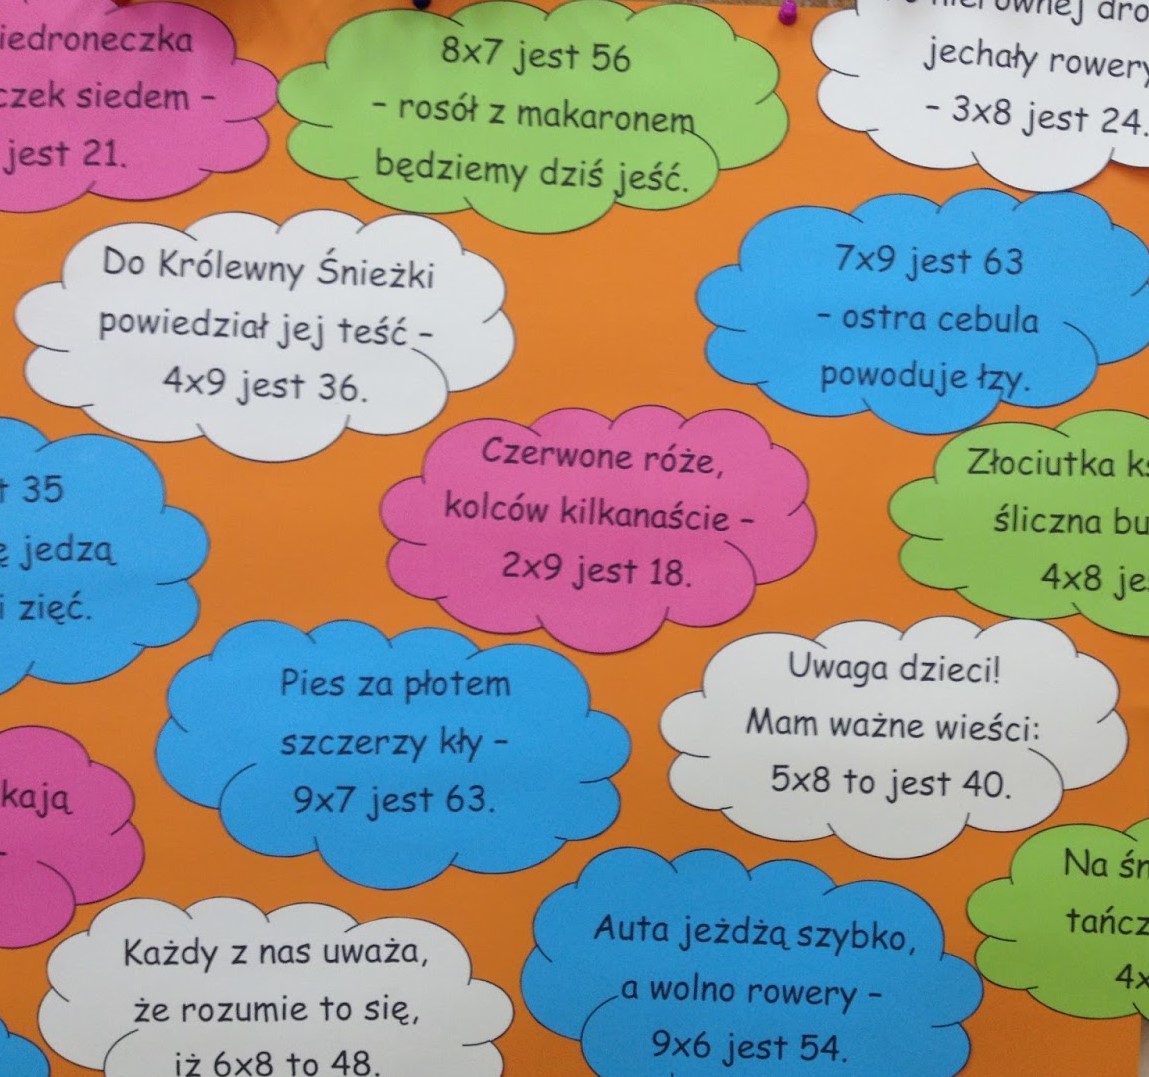 jest 21.
siedem -
8x7 jest 56
- rosół z makaronem
będziemy dziś jeść.
jechały rowery
- 3x8 jest 24.
Do Królewny Śnieżki
powiedział jej teść -
4x9 jest 36.
7x9 jest 63
- ostra cebula
powoduje łzy.
35
jedzą
i zięć.
Czerwone róże,
kolców kilkanaście -
2x9 jest 18.
Złociutka
śliczna
4x8
Pies za płotem
szczerzy kły -
9x7 jest 63.
Uwaga dzieci!
Mam ważne wieści:
5x8 to jest 40.
Każdy z nas uważa,
że rozumie to się,
iż 6x8 to 48.
Auta jeżdżą szybko,
a wolno rowery -
9x6 jest 54.
Na